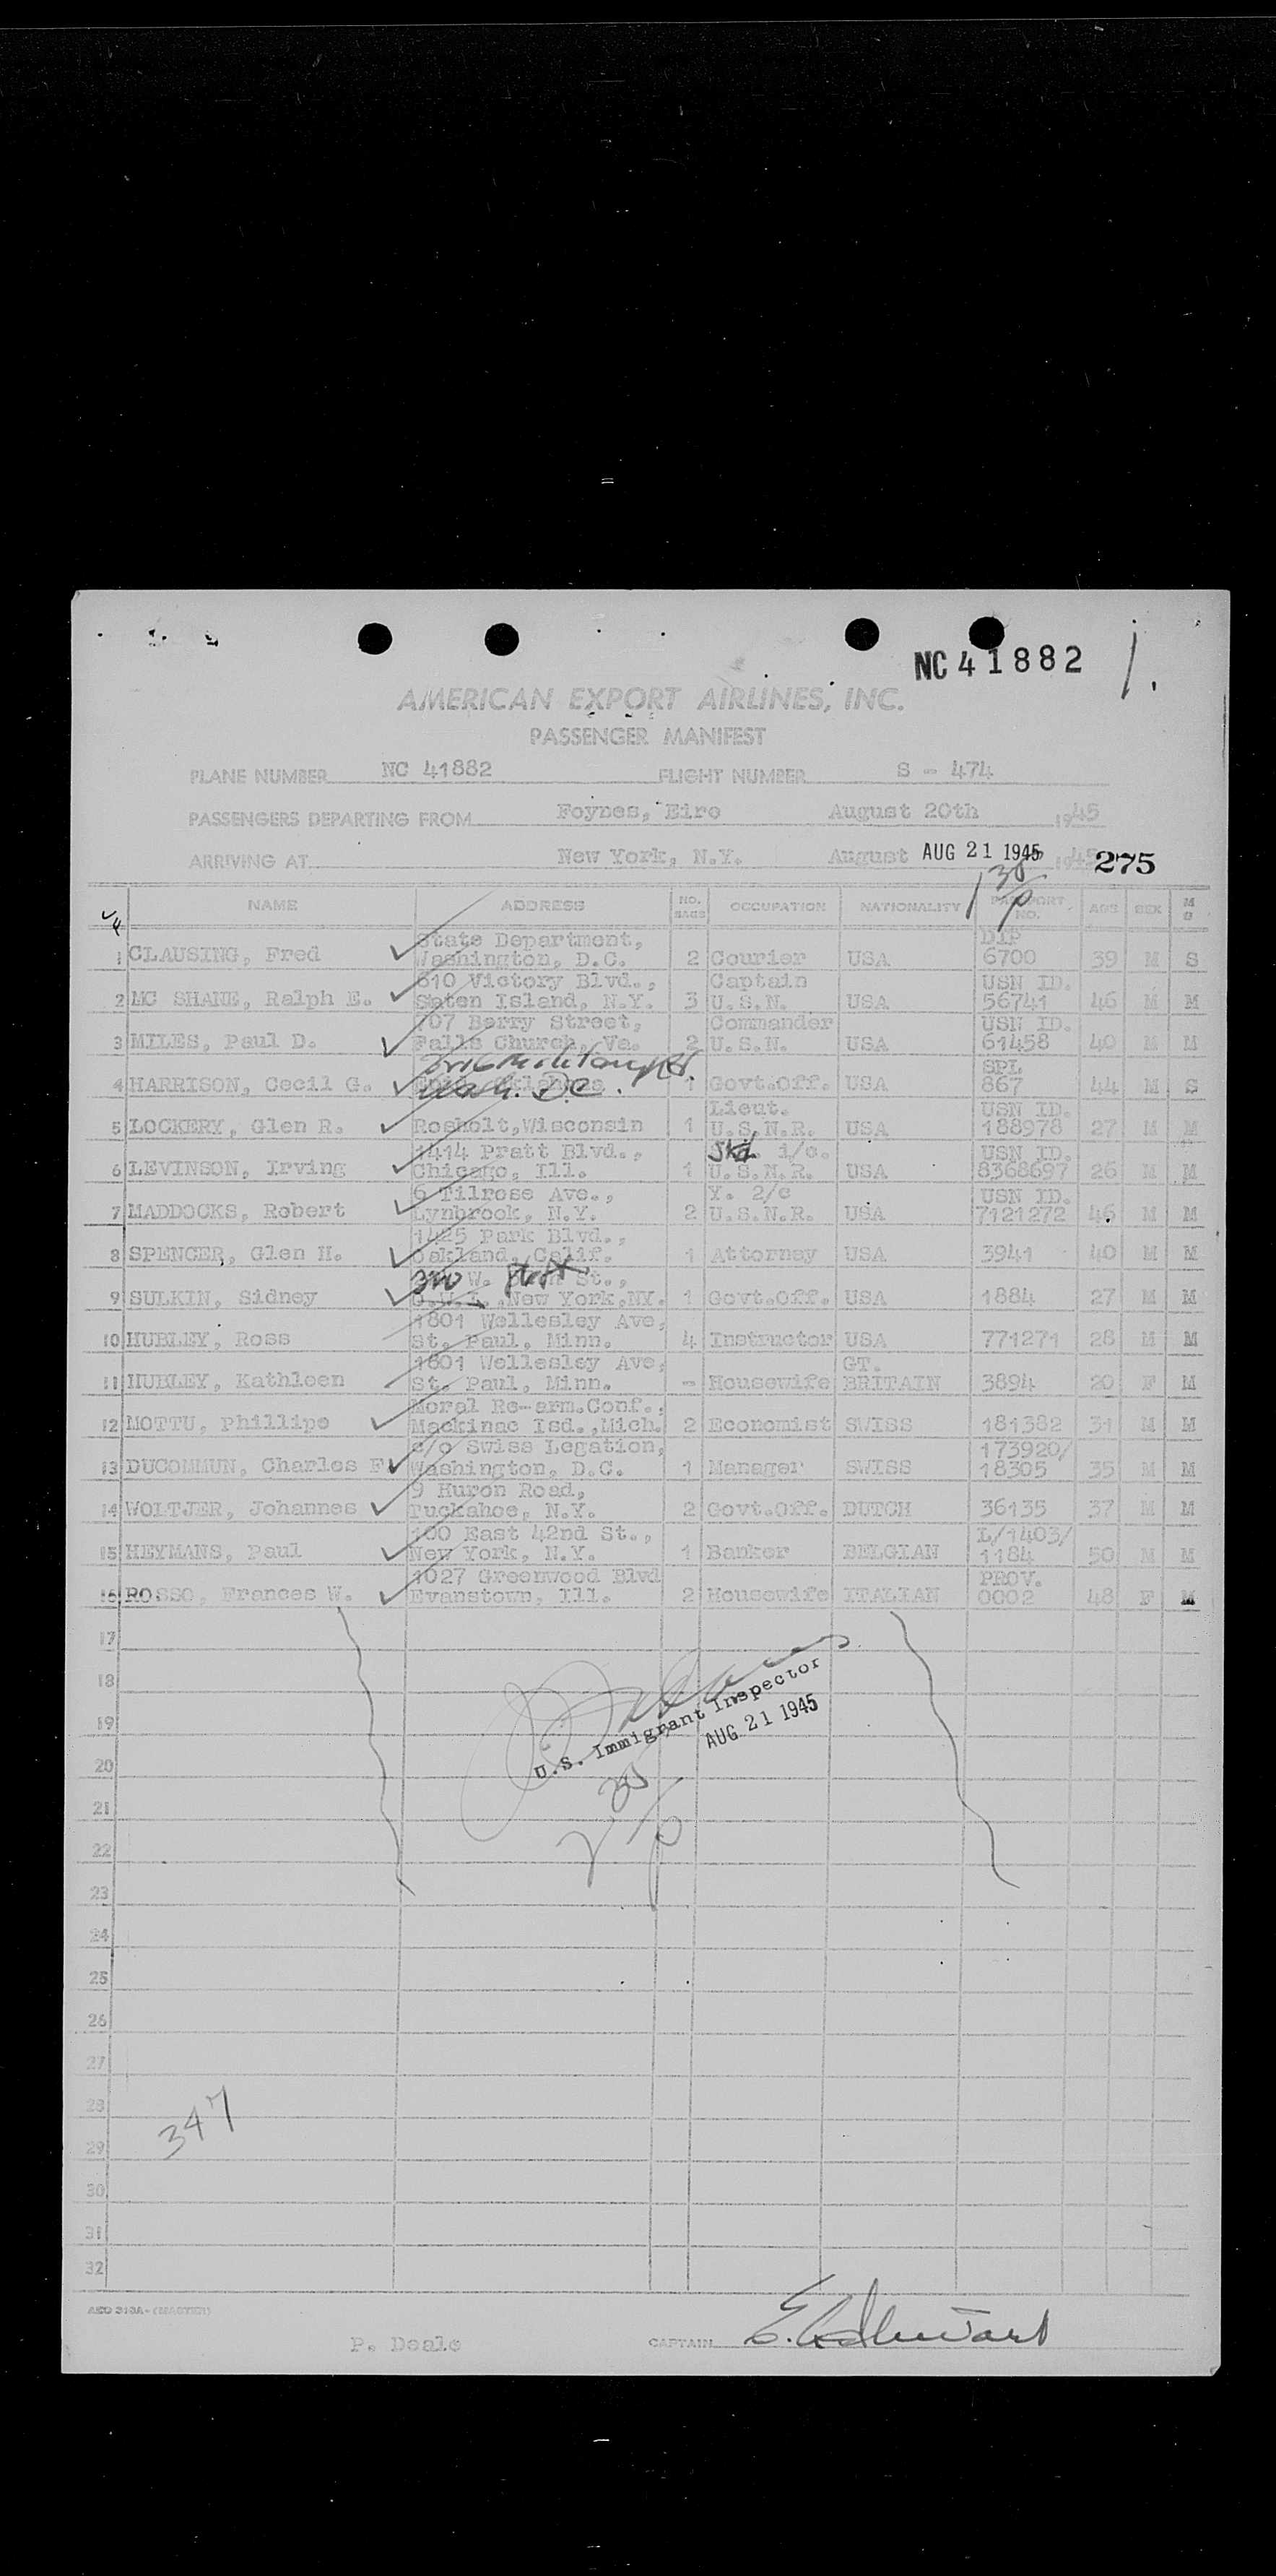 NC 41882 1.
AMERICAN EXPORT AIRLINES, INC.
PASSENGER MANIFEST
PLANE NUMBER NC 41882 FLIGHT NUMBER S - 474
PASSENGERS DEPARTING FROM Foynes, Eire August 20th 1945
ARRIVING AT New York, N.Y. August AUG 21 1945 1945 275
1 30/p
NAME ADDRESS NO. BAGS OCCUPATION NATIONALITY PASSPORT NO. AGE SEX M S
State Department, DIP
1 CLAUSING, Fred Washington, D.C. 2 Courier USA 6700 39 M S
610 Victory Blvd., Captain USN ID.
2 MC SHANE, Ralph E. Staten Island, N.Y. 3 U.S.N. USA 56741 46 M M
707 Berry Street, Commander USN ID.
3 MILES, Paul D. Falls Church, Va. 2 U.S.N. USA 61458 40 M M
SPL
4 HARRISON, Cecil G. Wash. D.C. 1 Govt.Off. USA 867 44 M S
Lieut. USN ID.
5 LOCKERY, Glen R. Rosholt,Wisconsin 1 U.S.N.R. USA 188978 27 M M
1414 Pratt Blvd., Skd. 1/c. USN ID.
6 LEVINSON, Irving Chicago, Ill. 1 U.S.N.R. USA 8368697 26 M M
6 Tilrose Ave., Y. 2/c USN ID.
7 MADDOCKS, Robert Lynbrook, N.Y. 2 U.S.N.R. USA 7121272 46 M M
1425 Park Blvd.,
8 SPENCER, Glen H. Oakland, Calif. 1 Attorney USA 3941 40 M M
W. St.,
9 SULKIN, Sidney New York,NY. 1 Govt.Off. USA 1884 27 M M
1801 Wellesley Ave,
10 HUBLEY, Ross St. Paul, Minn. 4 Instructor USA 771271 28 M M
1801 Wellesley Ave, GT.
11 HUBLEY, Kathleen St. Paul, Minn. - Housewife BRITAIN 3894 20 F M
Moral Re-arm.Conf.,
12 MOTTU, Phillipe Mackinac Isd.,Mich. 2 Economist SWISS 181382 31 M M
c/o Swiss Legation, 173920/
13 DUCOMMUN, Charles F. Washington, D.C. 1 Manager SWISS 18305 35 M M
9 Huron Road,
14 WOLTJER, Johannes Tuckahoe, N.Y. 2 Govt.Off. DUTCH 36135 37 M M
100 East 42nd St., L/1403/
15 HEYMANS, Paul New York, N.Y. 1 Banker BELGIAN 1184 50 M M
1027 Greenwood Blvd PROV.
16 ROSSO, Frances W. Evanstown, Ill. 2 Housewife ITALIAN 0002 48 F M
17
18
U.S. Immigrant Inspector
19
AUG 21 1945
20
21
22
23
24
25
26
27
28
347
29
30
31
32
P. Deale CAPTAIN